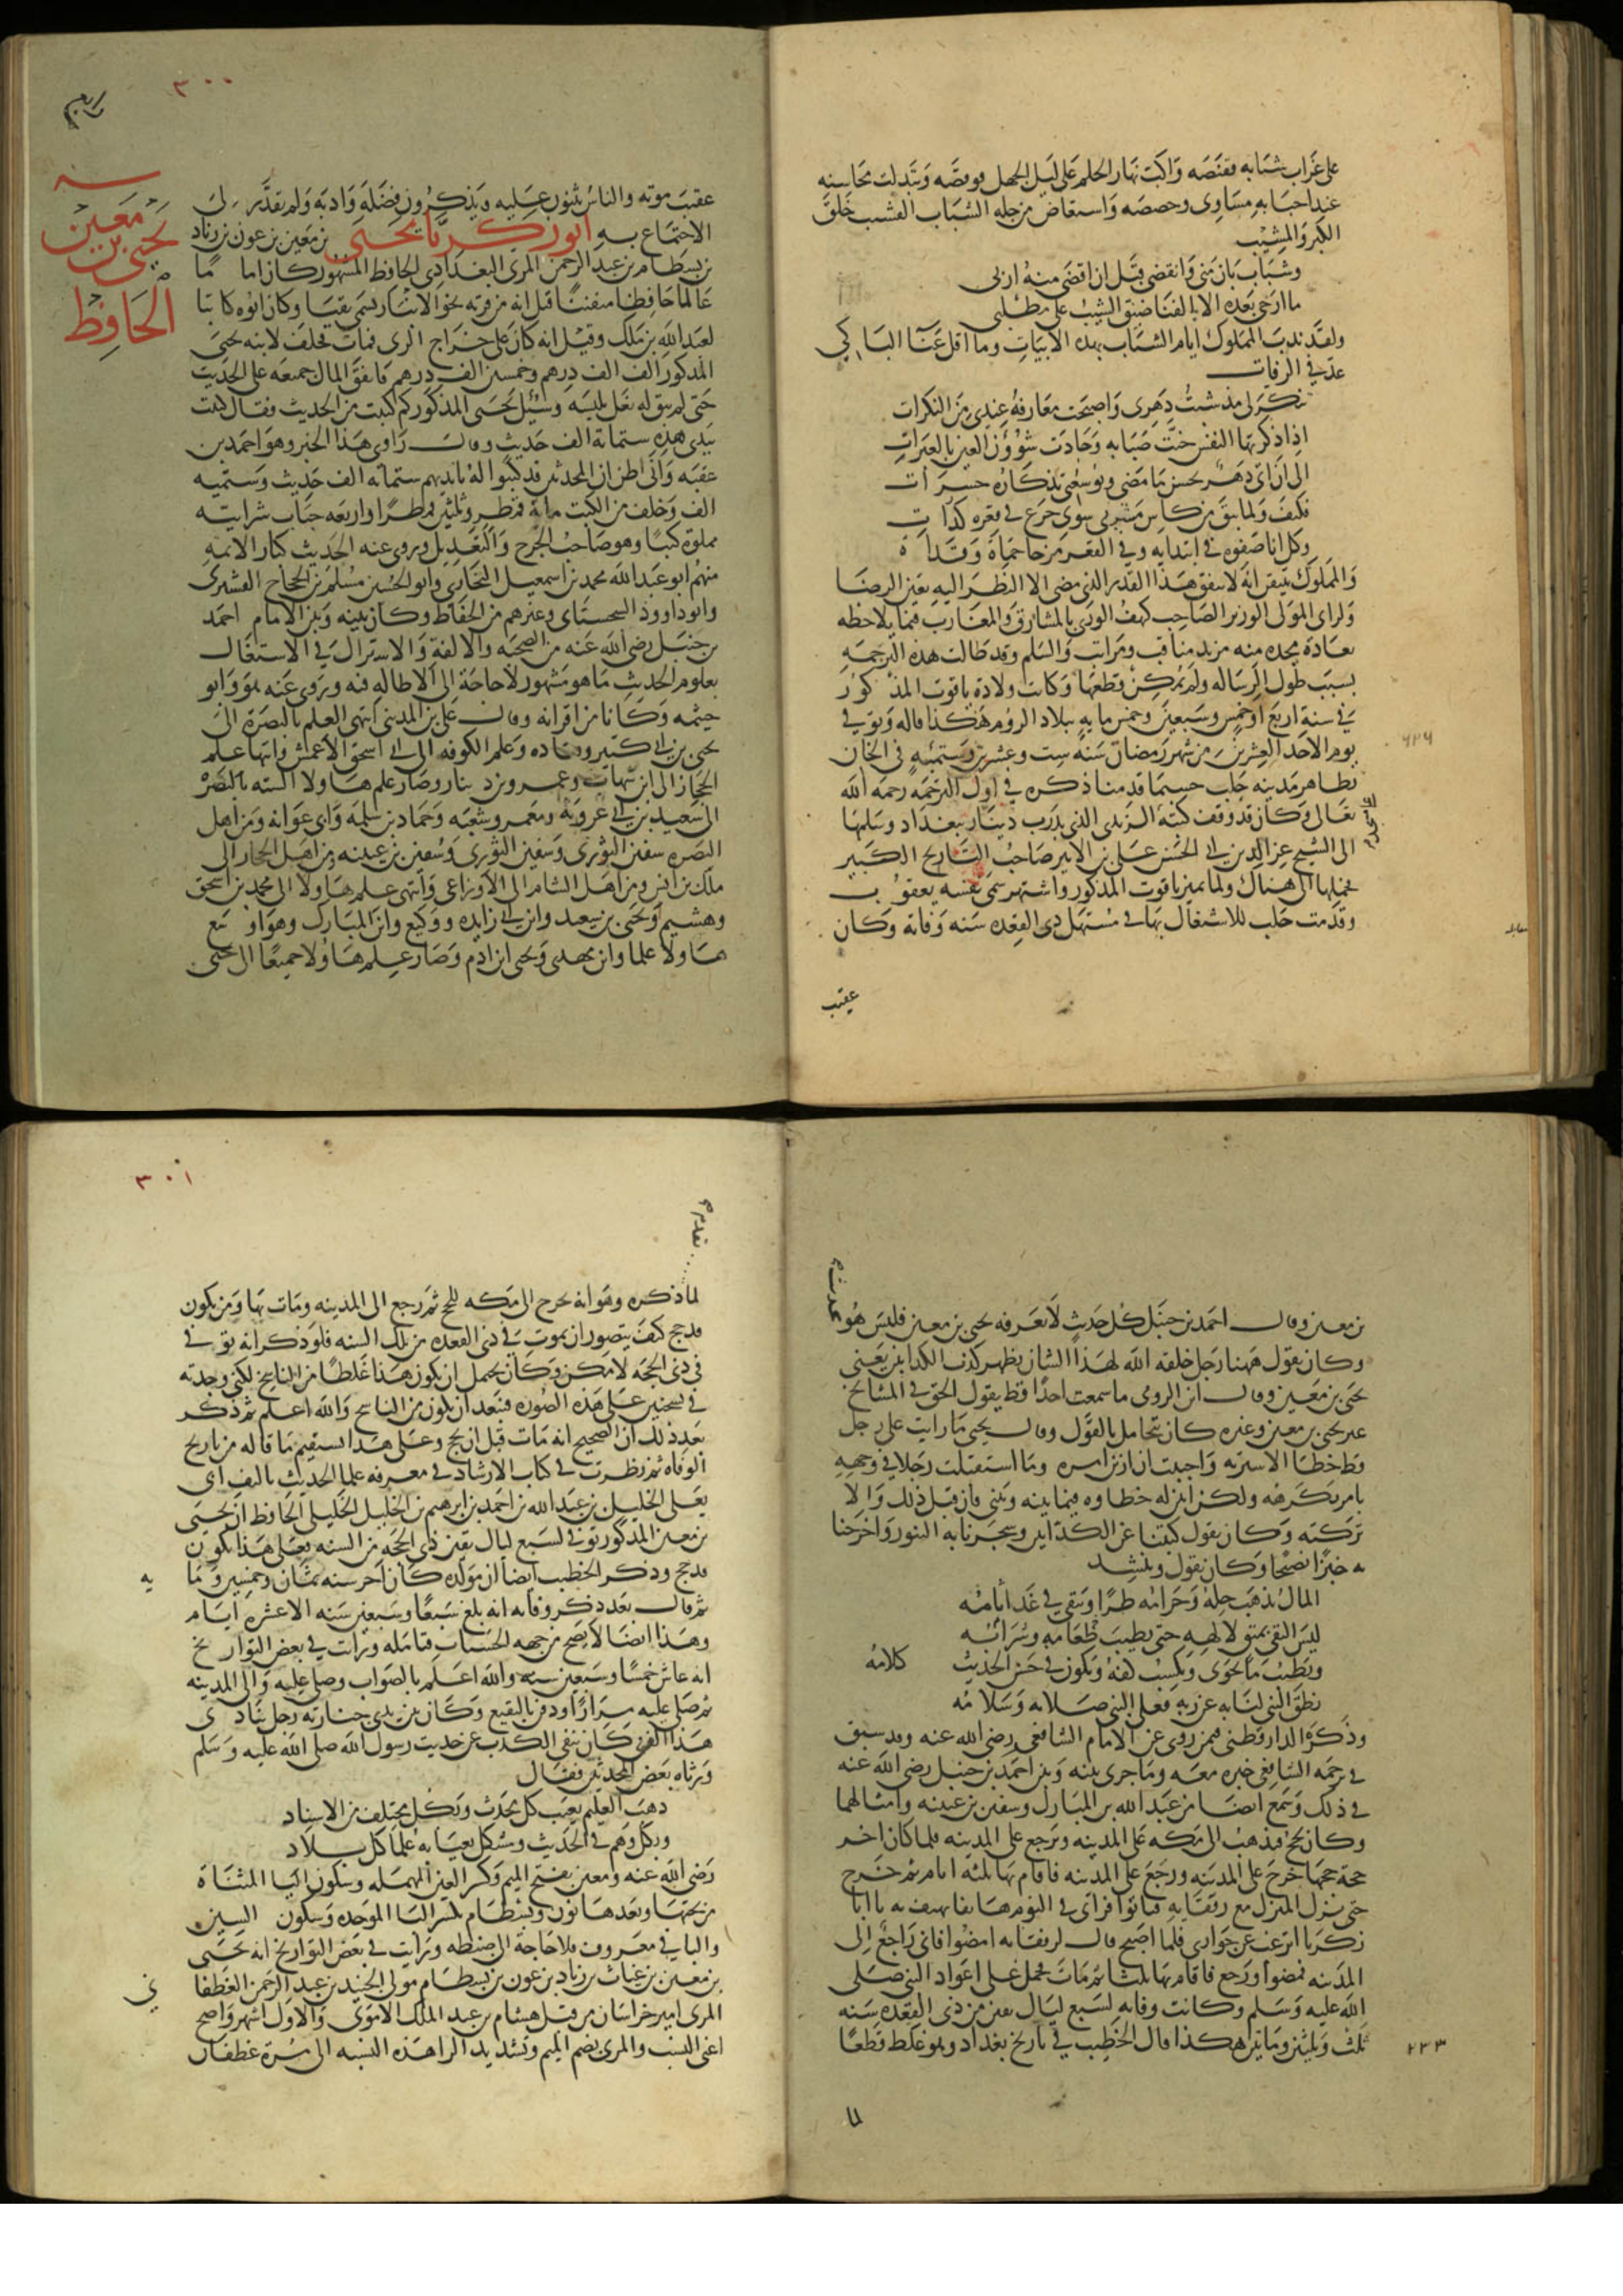 على غراب شبابه فقنصه واكبّ نهار الحلم على ليل الجهل فوقصه وتبدلت محاسنه
عند احبابه مساوى وحصصه واستعاض من حله الشباب القشب خلق
الكبر والمشيب
وشباب بان منى وانقضى قبل ان اقضى منه اربى
ما ارجى بعده الا الفنا ضيق الشيب على مطلبى
ولقد ندب المملوك ايام الشباب بهذه الابيات وما اقل غنا الباكي
على فى الرفات
تنكر لى مذ شبت دهرى واصبحت معارفه عندى من النكرات
اذا ذكرتها النفس حنت صبابه وجادت شؤون العين بالعبرات
الى ان اتى دهر يحسن ما مضى ويوسعنى تذكاره حسرات
فكيف ولما يبق من كاس مشربى سوى جرع فى قعره كدرات
وكل انا صفوه فى ابتدايه وفى القعر مزجا حماة وقذاة
والمملوك يتيقن انه لا ينفق هذا القدر الذى مضى الا النظر اليه بعين الرضا
ولراى المولى الوزير الصاحب كهف الورى بالمشارق والمغارب فيما يلاحظه
بعادة مجده منه مزيد مناقب ومراتب والسلم وقد طالت هذه الترجمه
بسبب طول الرساله ولم يمكن قطعها وكانت ولادة ياقوت المذكور
فى سنة اربع او خمس وسبعين وخمس مايه ببلاد الروم هكذا قاله وتوفى
يوم الاحد العشرين من شهر رمضان سنه ست وعشرين وستميه فى الخان
٦٢٦
بظاهر مدينه حلب حسبما قدمنا ذكره فى اول الترجمه رحمه الله
تعالى وكان قد وقف كتبه الزيدى الذى بدرب دينار ببغداد وسلمها
الى الشيخ عز الدين ابى الحسن على بن الاثير صاحب التاريخ الكبير
فحملها الى هناك ولما تميز ياقوت المذكور واشتهر سمى نفسه يعقوب
وقدمت حلب للاشتغال بها فى مستهل ذى القعده سنه وفاته وكان
عقيب
٣٠٠
عقيب موته والناس يثنون عليه ويذكرون فضله وادبه ولم يقدر لى
الاجتماع به ابو زكريا يحيى بن معين بن عون بن زياد
يحيى بن
معين
الحافظ
بن بسطام بن عبد الرحمن المرى البغدادى الحافظ المشهور كان اماما
عالما حافظا متقنا قيل انه من قرية نحو الانبار تسمى نقيا وكان ابوه كاتبا
لعبد الله بن ملك وقيل انه كان على خراج الرى فمات فخلف لابنه يحيى
المذكور الف الف درهم وخمسين الف درهم فانفق المال جميعه على الحديث
حتى لم يبق له نعل يلبسه وسئل يحيى المذكور كم كتبت من الحديث فقال كتبت
بيدى هذه ستماية الف حديث وقال راوى هذا الخبر وهو احمد بن
عقبه وانى اظن ان المحدثين قد كتبوا له بايديهم ستمايه الف حديث وستميه
الف وخلف من الكتب مايه قمطر وثلثين قمطرا واربعه حباب شرابيه
مملوة كتبا وهو صاحب الجرح والتعديل وروى عنه الحديث كبار الايمه
منهم ابو عبد الله محمد بن اسمعيل البخارى وابو الحسين مسلم بن الحجاج القشيرى
وابو داوود السجستانى وغيرهم من الحفاظ وكان بينه وبين الامام احمد
بن حنبل رضى الله عنه من الصحبه والالفة والاشتراك فى الاشتغال
بعلوم الحديث ما هو مشهور لا حاجة الى الاطاله فيه وروى عنه هو وابو
خيثمه وكانا من اقرانه وقال على بن المدينى انتهى العلم بالبصرة الى
يحيى بن ابى كثير وقتاده وعلم الكوفه الى ابى اسحق والاعمش وانتها علم
الحجاز الى ابن شهاب وعمرو بن دينار وصار علم هاولا الستة بالبصره
الى سعيد بن ابى عروبة ومعمر وشعبه وحماد بن سلمه وابى عوانه ومن اهل
البصره سفين الثورى وسفين الثورى وسفين بن عيينه ومن اهل الحجاز الى
ملك بن انس ومن اهل الشام الى الاوزاعى وانتهى علم هاولا الى محمد بن اسحق
وهشيم ويحيى بن سعيد وابن ابى زايده ووكيع وابن المبارك وهو اوسع
هاولا علما وابن مهدى ويحيى ابن ادم وصار علم هاولا جميعا الى يحيى
بن معين وقال احمد بن حنبل كل حديث لا يعرفه يحيى بن معين فليس هو
بحديث
وكان يقول ههنا رجل خلقه الله لهذا الشان يظهر كذب الكذابين يعنى
يحيى بن معين وقال ابن الرومى ما سمعت احدا قط يقول الحق فى المشايخ
غير يحيى بن معين وغيره كان يتحامل بالقول وقال يحيى ما رايت على رجل
قط خطا الا سترته واحببت ان ازين امره وما استقبلت رجلا فى وجهه
بامر يكرهه ولكن ابين له خطاوه فيما بينه وبينى فان قبل ذلك والا
تركته وكان يقول كتبنا عن الكذابين وسجرنا به التنور واخرجنا
به خبزا نضيجا وكان يقول وينشد
المال يذهب حله وحرامه طرا ويبقى فى غد اثامه
ليس التقى بمتق لالهه حتى يطيب طعامه وشرابه
ويطيب ما يحوى ويكسب كفه ويكون فى حسن الحديث كلامه
نطق النبى لنا به عن ربه فعلى النبى صلاته وسلامه
وذكره الدارقطنى فيمن روى عن الامام الشافعى رضى الله عنه وقد سبق
فى ترجمه الشافعى خبره معه وما جرى بينه وبين احمد بن حنبل رضى الله عنه
فى ذلك وسمع ايضا من عبد الله بن المبارك وسفين بن عيينه وامثالهما
وكان يحج فيذهب الى مكه على المدينه ويرجع على المدينه فلما كان اخر
حجة حجها خرج على المدينه ورجع على المدينه فاقام بها ثلثه ايام ثم خرج
حتى نزل المنزل مع رفقايه فباتوا فراى فى النوم هاتفا يهتف به يا ابا
زكريا اترغب عن جوارى فلما اصبح قال لرفقايه امضوا فانى راجع الى
المدينه فمضوا ورجع فاقام بها ثلثا ثم مات فحمل على اعواد النبى صلى
الله عليه وسلم وكانت وفاته لسبع ليال بقين من ذى القعده سنه
ثلث وثلثين وماتين هكذا قال الخطيب فى تاريخ بغداد وهو غلط قطعا
٢٣٣
لما
٣٠١
لما ذكره وهو انه خرج الى مكه للحج ثم رجع الى المدينه ومات بها ومن يكون
قد حج كيف يتصور ان يموت فى ذى القعده من تلك السنه فلو ذكر انه توفى فى
فى ذى الحجه لامكن وكان يحتمل ان يكون هذا غلطا من الناسخ لكنى وجدته
فى نسختين على هذه الصوره فيبعد ان يكون من الناسخ والله اعلم ثم ذكر
بعد ذلك ان الصحيح انه مات قبل ان يحج وعلى هذا يستقيم ما قاله من تاريخ
الوفاه ثم نظرت فى كتاب الارشاد فى معرفه علما الحديث تاليف ابى
يعلى الخليل بن عبد الله بن احمد بن ابرهيم بن الخليل الخليلى الحافظ ان يحيى
بن معين المذكور توفى لسبع ليال بقين من ذى الحجه من السنه فعلى هذا يكون
قد حج وذكر الخطيب ايضا ان مولده كان اخر سنه ثمان وخمسين وما يه
ثم قال بعد ذكر وفاته انه بلغ سبعا وسبعين سنه الا عشره ايام
وهذا ايضا لا يصح من جهه الحساب فتامله ورايت فى بعض التواريخ
انه عاش خمسا وسبعين سنه والله اعلم بالصواب وصلى عليه والى المدينه
ثم صلى عليه مرارا ودفن بالبقيع وكان بين يدى جنازته رجل ينادى
هذا الذى كان ينفى الكذب عن حديث رسول الله صلى الله عليه وسلم
ورثاه بعض المحدثين فقال
ذهب العليم بعيب كل محدث وبكل مختلف من الاسناد
وبكل وهم فى الحديث ومشكل يعيا به علما كل بلاد
رضى الله عنه ومعين بفتح الميم وكسر العين المهمله وسكون اليا المثناة
من تحتها وبعدها نون وبسطام بكسر البا الموحده وسكون السين
والباقى معروف فلا حاجة الى ضبطه ورايت فى بعض التواريخ انه يحيى
بن معين بن غياث بن زياد بن عون بن بسطام مولى الجنيد بن عبد الرحمن الغطفا نى
المرى امير خراسان من قبل هشام بن عبد الملك الاموى والاول اشهر واصح
اعنى النسب والمرى بضم الميم وتشديد الرا هذه النسبه الى مرة غطفان